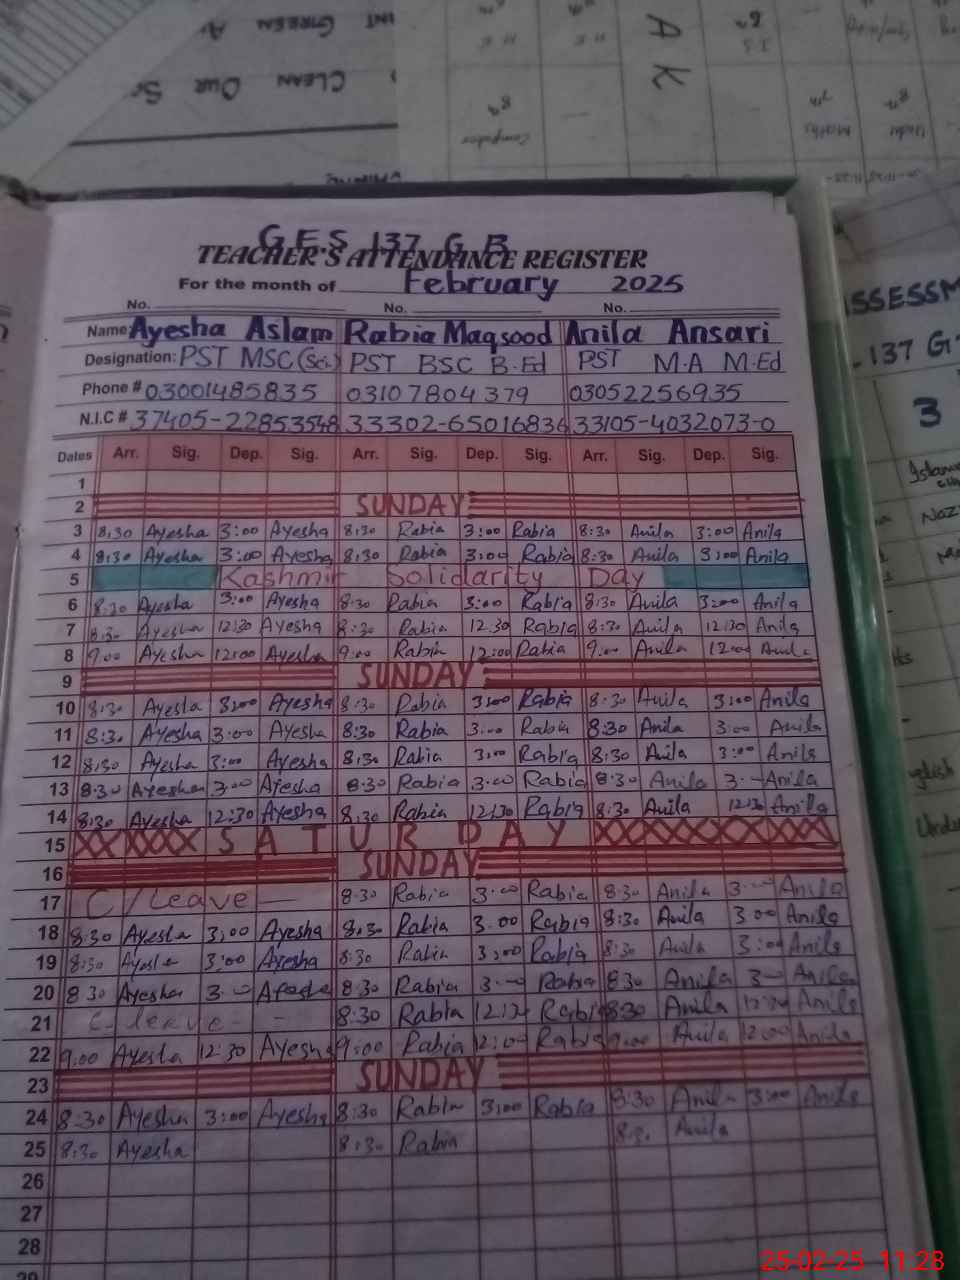 GREEN
CLEAN OUR
A K
Computer
Maths
Urdu
G.E.S 137 G B
TEACHER'S ATTENDANCE REGISTER
For the month of February 2025
No. No. No.
Name: Ayesha Aslam Rabia Maqsood Anila Ansari
Designation: PST MSC(Sci) PST BSC B.Ed PST M.A M.Ed
Phone # 03001485835 03107804379 03052256935
N.I.C # 37405-22853548 33302-65016836 33105-4032073-0
Dates Arr. Sig. Dep. Sig. Arr. Sig. Dep. Sig. Arr. Sig. Dep. Sig.
1
2 SUNDAY
3 8:30 Ayesha 3:00 Ayesha 8:30 Rabia 3:00 Rabia 8:30 Anila 3:00 Anila
4 8:30 Ayesha 3:00 Ayesha 8:30 Rabia 3:00 Rabia 8:30 Anila 3:00 Anila
5 Kashmir Solidarity Day
6 8:30 Ayesha 3:00 Ayesha 8:30 Rabia 3:00 Rabia 8:30 Anila 3:00 Anila
7 8:30 Ayesha 12:30 Ayesha 8:30 Rabia 12.30 Rabia 8:30 Anila 12:30 Anila
8 9:00 Ayesha 12:00 Ayesha 9:00 Rabia 12:00 Rabia 9:00 Anila 12:00 Anila
9 SUNDAY
10 8:30 Ayesha 3:00 Ayesha 8:30 Rabia 3:00 Rabia 8:30 Anila 3:00 Anila
11 8:30 Ayesha 3:00 Ayesha 8:30 Rabia 3:00 Rabia 8:30 Anila 3:00 Anila
12 8:30 Ayesha 3:00 Ayesha 8:30 Rabia 3:00 Rabia 8:30 Anila 3:00 Anila
13 8:30 Ayesha 3:00 Ayesha 8:30 Rabia 3:00 Rabia 8:30 Anila 3:00 Anila
14 8:30 Ayesha 12:30 Ayesha 8:30 Rabia 12:30 Rabia 8:30 Anila 12:30 Anila
15 XXXXX SATURDAY XXXXXXXXX
16 SUNDAY
17 C/Leave 8:30 Rabia 3:00 Rabia 8:30 Anila 3:00 Anila
18 8:30 Ayesha 3:00 Ayesha 8:30 Rabia 3:00 Rabia 8:30 Anila 3:00 Anila
19 8:30 Ayesha 3:00 Ayesha 8:30 Rabia 3:00 Rabia 8:30 Anila 3:00 Anila
20 8:30 Ayesha 3:00 Ayesha 8:30 Rabia 3:00 Rabia 8:30 Anila 3:00 Anila
21 C-leave 8:30 Rabia 12:30 Rabia 8:30 Anila 12:30 Anila
22 9:00 Ayesha 12:30 Ayesha 9:00 Rabia 12:00 Rabia 9:00 Anila 12:00 Anila
23 SUNDAY
24 8:30 Ayesha 3:00 Ayesha 8:30 Rabia 3:00 Rabia 8:30 Anila 3:00 Anila
25 8:30 Ayesha 8:30 Rabia 8:30 Anila
26
27
28
137 G
3
25-02-25 11:28